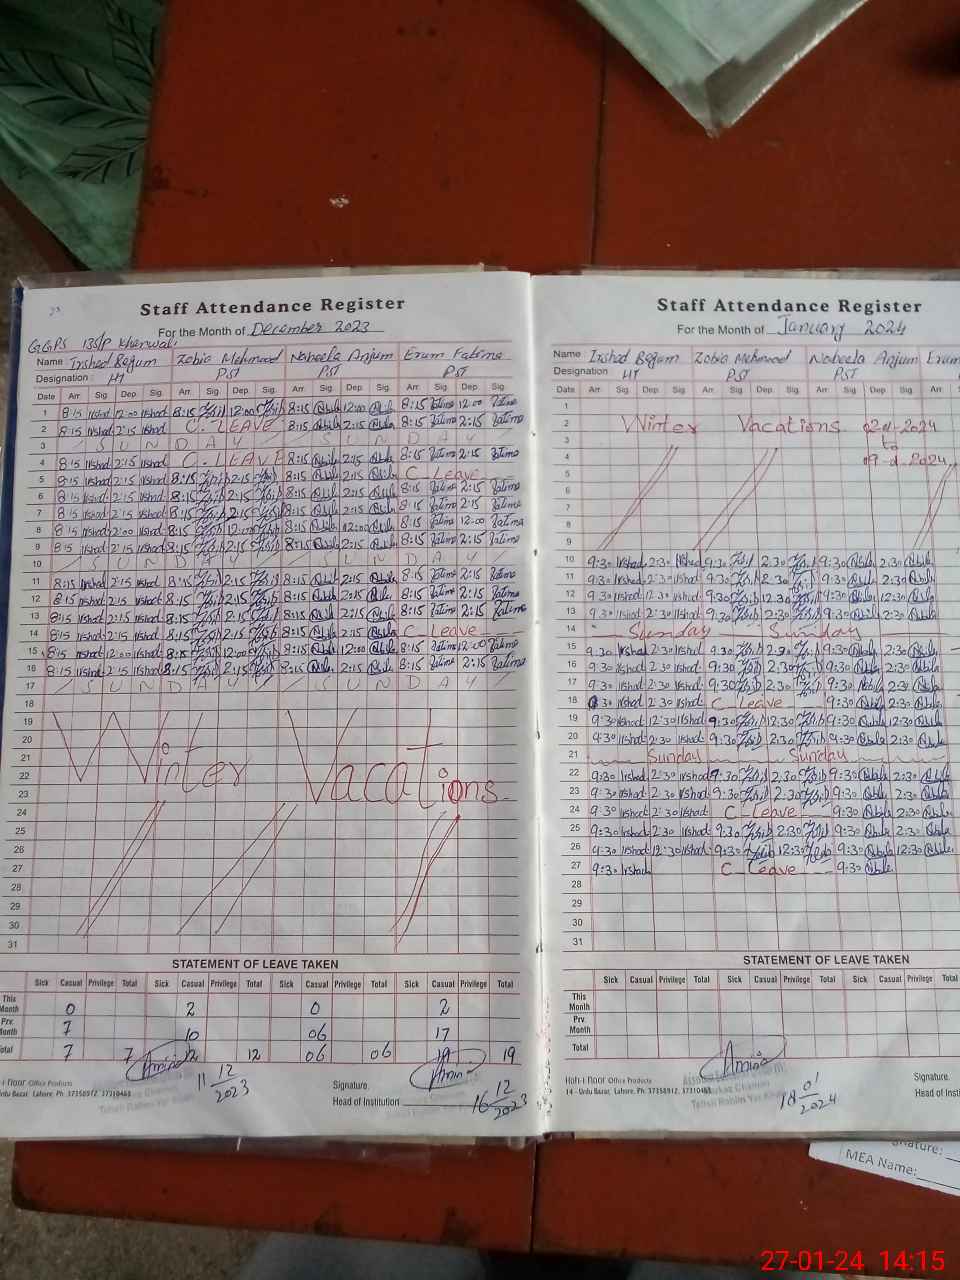 Staff Attendance Register
For the Month of December 2023
G.G.P.S 135/P Kherwali
Name : Irshad Begum Zobia Mehmood Nabeela Anjum Erum Fatima
Designation : HT PST PST PST
Date Arr. Sig. Dep. Sig. Arr. Sig. Dep. Sig. Arr. Sig. Dep. Sig. Arr. Sig. Dep. Sig.
1 8:15 Irshad 12:00 Irshad 8:15 12:00 8:15 12:00 8:15 Fatima 12:00 Fatima
2 8:15 Irshad 2:15 Irshad C. LEAVE 8:15 2:15 8:15 Fatima 2:15 Fatima
3 SUNDAY SUNDAY
4 8:15 Irshad 2:15 Irshad C. LEAVE 8:15 2:15 8:15 Fatima 2:15 Fatima
5 8:15 Irshad 2:15 Irshad 8:15 2:15 8:15 2:15 C Leave
6 8:15 Irshad 2:15 Irshad 8:15 2:15 8:15 2:15 8:15 Fatima 2:15 Fatima
7 8:15 Irshad 2:15 Irshad 8:15 2:15 8:15 2:15 8:15 Fatima 2:15 Fatima
8 8:15 Irshad 2:00 Irshad 8:15 12:00 8:15 12:00 8:15 Fatima 12:00 Fatima
9 8:15 Irshad 2:15 Irshad 8:15 2:15 8:15 2:15 8:15 Fatima 2:15 Fatima
10 SUNDAY SUNDAY
11 8:15 Irshad 2:15 Irshad 8:15 2:15 8:15 2:15 8:15 Fatima 2:15 Fatima
12 8:15 Irshad 2:15 Irshad 8:15 2:15 8:15 2:15 8:15 Fatima 2:15 Fatima
13 8:15 Irshad 2:15 Irshad 8:15 2:15 8:15 2:15 8:15 Fatima 2:15 Fatima
14 8:15 Irshad 2:15 Irshad 8:15 2:15 8:15 2:15 C Leave
15 8:15 Irshad 12:00 Irshad 8:15 12:00 8:15 12:00 8:15 Fatima 12:00 Fatima
16 8:15 Irshad 2:15 Irshad 8:15 2:15 8:15 2:15 8:15 Fatima 2:15 Fatima
17 SUNDAY SUNDAY
18
19
20
21
22 Winter Vacations
23
24
25
26
27
28
29
30
31
STATEMENT OF LEAVE TAKEN
Sick Casual Privilege Total Sick Casual Privilege Total Sick Casual Privilege Total Sick Casual Privilege Total
This Month 0 2 0 2
Prv. Month 7 10 06 17
Total 7 7 12 12 06 06 19 19
Amina
11 12 2023
Office Products
Urdu Bazar, Lahore. Ph: 37358972, 37310468
Signature.
Head of Institution
Amina
16 12 2023
Staff Attendance Register
For the Month of January 2024
Name : Irshad Begum Zobia Mehmood Nabeela Anjum Erum
Designation : HT PST PST
Date Arr. Sig. Dep. Sig. Arr. Sig. Dep. Sig. Arr. Sig. Dep. Sig. Arr.
1
2 Winter Vacations 02-01-2024
3 to
4 09-01-2024
5
6
7
8
9
10 9:30 Irshad 2:30 Irshad 9:30 2:30 9:30 2:30
11 9:30 Irshad 2:30 Irshad 9:30 2:30 9:30 2:30
12 9:30 Irshad 12:30 Irshad 9:30 12:30 9:30 12:30
13 9:30 Irshad 2:30 Irshad 9:30 2:30 9:30 2:30
14 Sunday Sunday
15 9:30 Irshad 2:30 Irshad 9:30 2:30 9:30 2:30
16 9:30 Irshad 2:30 Irshad 9:30 2:30 9:30 2:30
17 9:30 Irshad 2:30 Irshad 9:30 2:30 9:30 2:30
18 Irshad 2:30 Irshad C Leave 9:30 2:30
19 9:30 Irshad 12:30 Irshad 9:30 12:30 9:30 12:30
20 9:30 Irshad 2:30 Irshad 9:30 2:30 9:30 2:30
21 Sunday Sunday
22 9:30 Irshad 2:30 Irshad 9:30 2:30 9:30 2:30
23 9:30 Irshad 2:30 Irshad 9:30 2:30 9:30 2:30
24 9:30 Irshad 2:30 Irshad C Leave 9:30 2:30
25 9:30 Irshad 2:30 Irshad 9:30 2:30 9:30 2:30
26 9:30 Irshad 12:30 Irshad 9:30 12:30 9:30 12:30
27 9:30 Irshad C Leave 9:30
28
29
30
31
STATEMENT OF LEAVE TAKEN
Sick Casual Privilege Total Sick Casual Privilege Total Sick Casual Privilege Total Sick
This Month
Prv. Month
Total
Amina
18 01 2024
Office Products
14 - Urdu Bazar, Lahore. Ph: 37358972, 37310468
Signature.
Head of Insti
MEA Name:
27-01-24 14:15